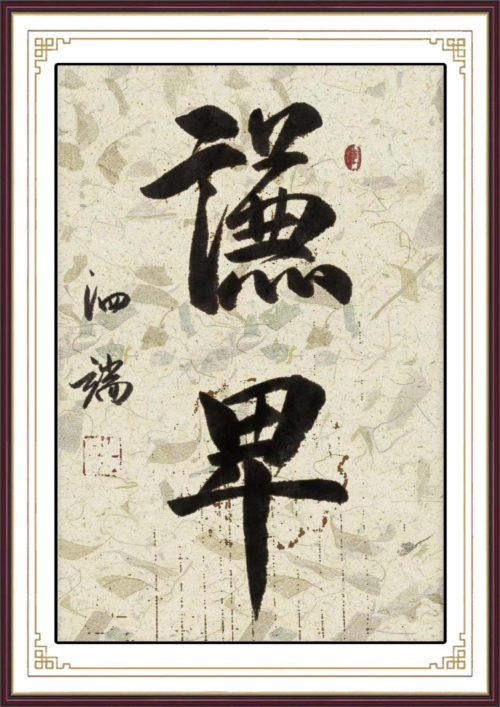 謙卑
泗端